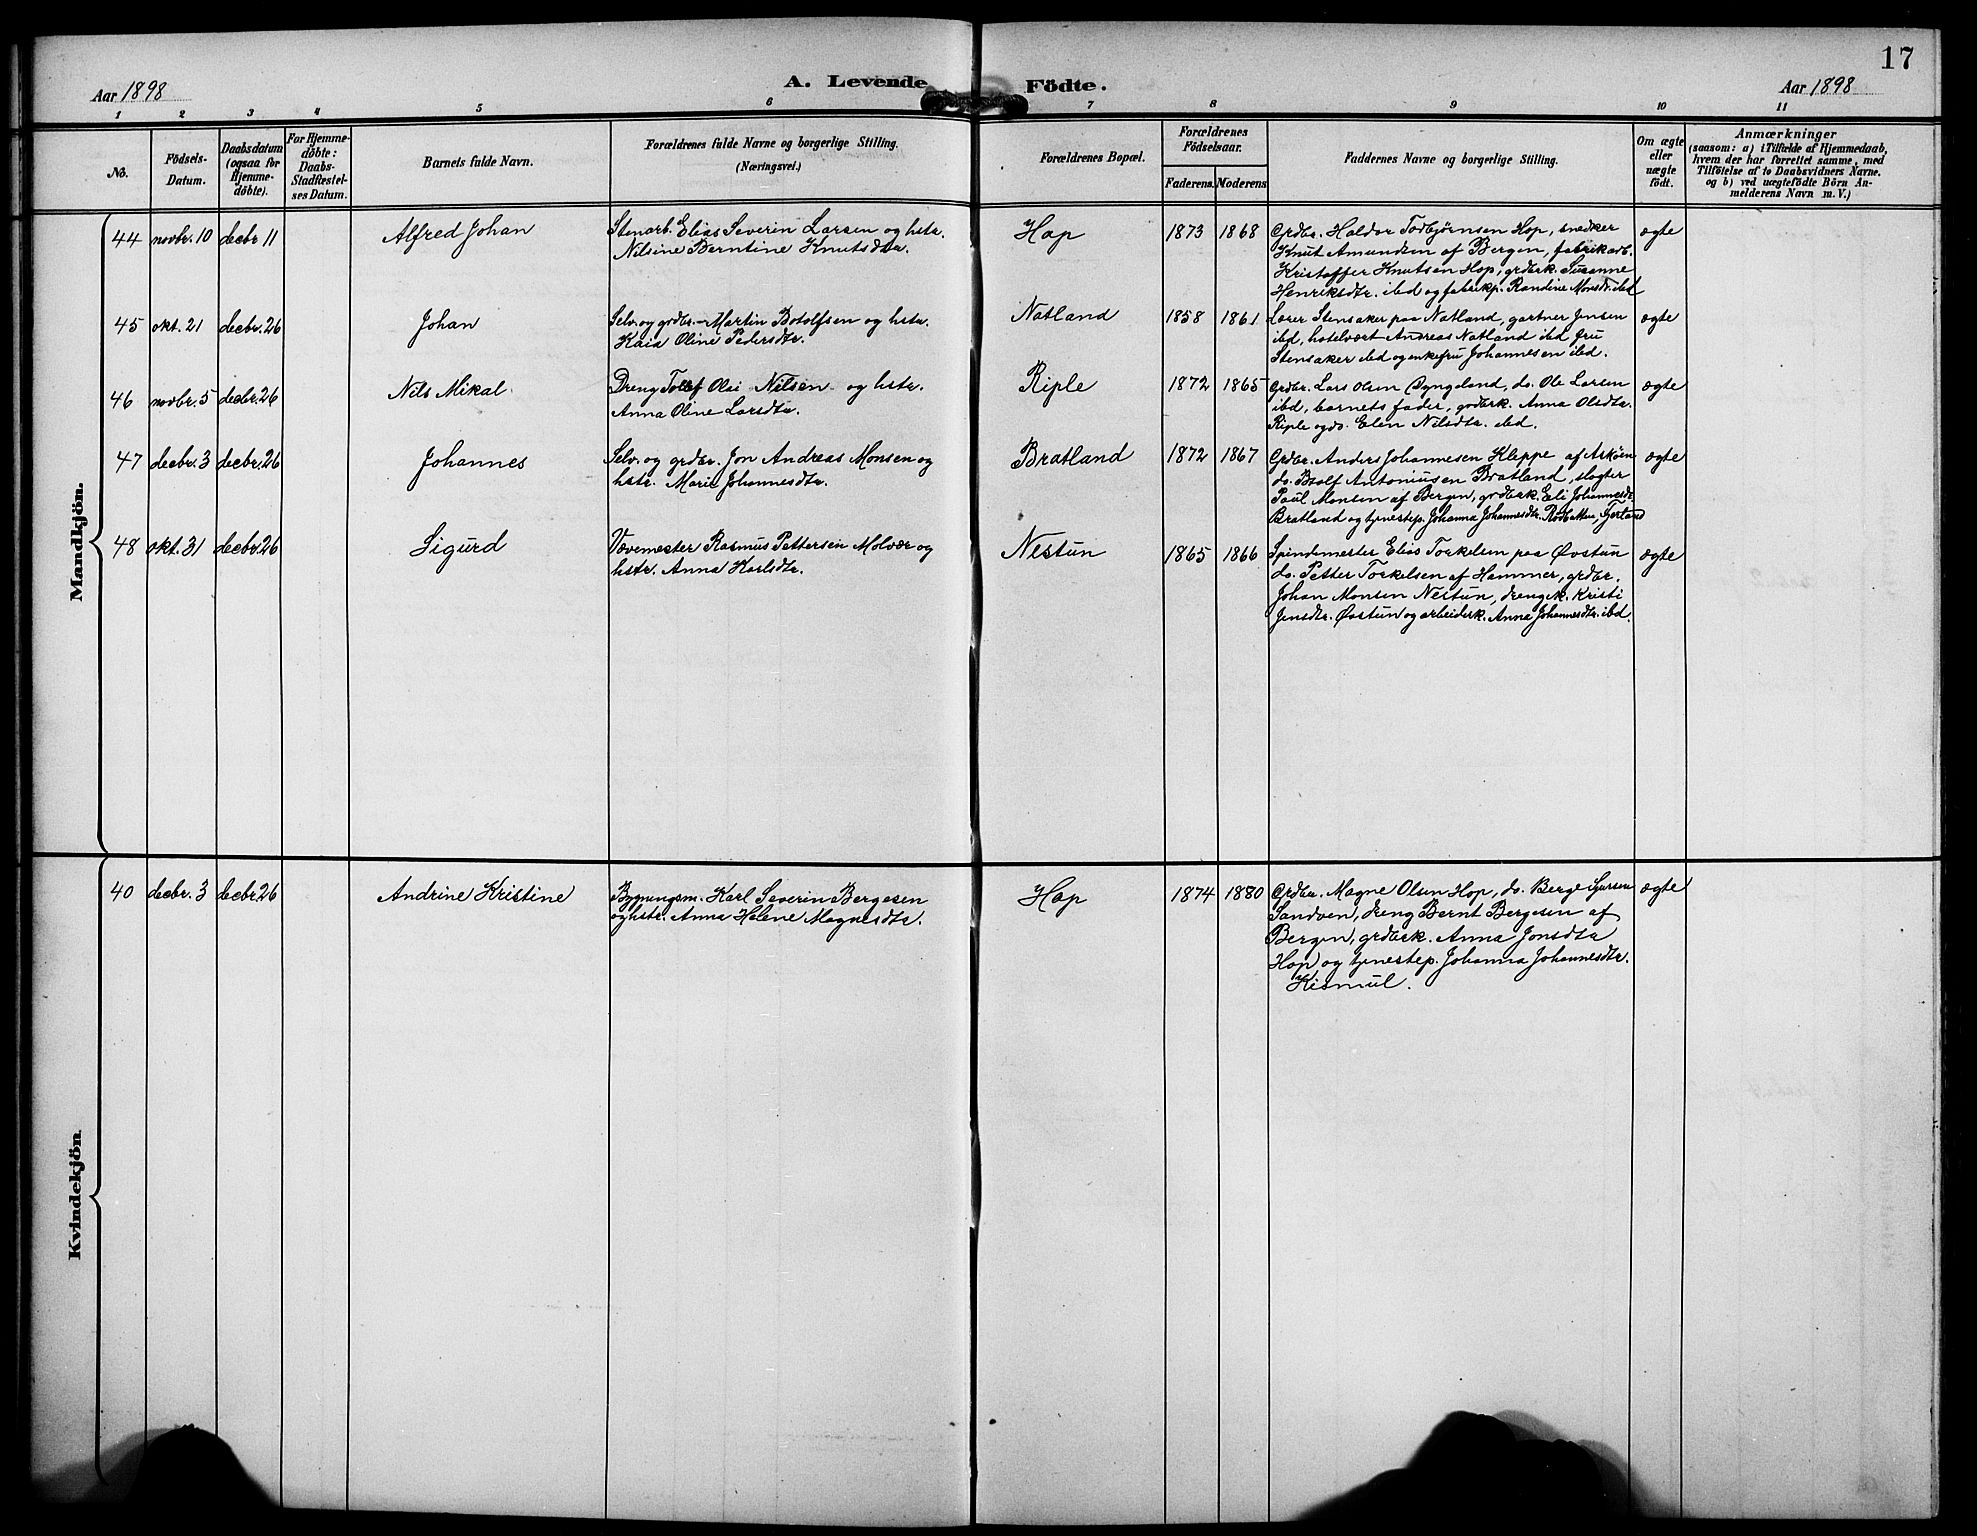 17
A. Levende Födte.
Aar 1898
Aar 1898
1 2 3 4 5 6 7 8 9 10 11
No.
Födsels-
Datum.
Daabsdatum
(ogsaa for
Hjemme-
döbte).
For Hjemme-
döbte:
Daabs-
Stadfæstel-
ses Datum.
Barnets fulde Navn.
Forældrenes fulde Navne og borgerlige Stilling.
(Næringsvei.)
Forældrenes Bopæl.
Forældrenes
Födselsaar.
Faderens. Moderens.
Faddernes Navne og borgerlige Stilling.
Om ægte
eller
uægte
födt.
Anmærkninger
(saasom: a) i Tilfælde af Hjemmedaab,
hvem der har forrettet samme, med
Tilföielse af to Daabsvidners Navne.
og b) ved uægtefödte Börn An-
melderens Navn m.V.)
Mandkjön.
44 novbr. 10 decbr 11
Alfred Johan
Stenarb. Elias Severin Larsen og hstr.
Nilsine Berntine Knutsdtr.
Hop
1873 1868
Grdbr. Haldor Todbjørnsen Hop, snedker
Knut Amundsen af Bergen, fabrikarb.
Kristoffer Knutsen Hop, grdbrk. Susanne
Henriksdtr. ibd og fabrikp. Randine Monsdtr. ibd
ægte
45 okt. 21 decbr. 26
Johan
Selv. og grdbr. Martin Botolfsen og hstr.
Kaia Oline Pedersdtr.
Natland
1858 1861
Lærer Stensaker paa Natland, gartner Jensen
ibd, hotelvært Andreas Natland ibd fru
Stensaker ibd og enkefru Johannesen ibd.
ægte
46 novbr. 5 decbr. 26
Nils Mikal.
Dreng Tollef Olai Nilsen og hstr.
Anna Oline Larsdtr.
Riple
1872 1865
Grdbr. Lars Olsen Dyngeland, do. Ole Larsen
ibd, barnets fader, grdbrk. Anna Olsdtr.
Riple og do. Elen Nilsdtr. ibd.
ægte
47 decbr. 3 decbr. 26
Johannes
Selv. og grdbr. Jon Andreas Monsen og
hstr. Marie Johannesdtr.
Bratland
1872 1867
Grdbr. Anders Johannesen Kleppe af Askøen
do. Botolf Antoniusen Bratland, slagter
Paul Monsen af Bergen, grdbrk. Eli Johannesdtr.
Bratland og tjenestep. Johanna Johannesdtr.
ægte
48 okt. 31 decbr. 26
Sigurd
Vævemester Rasmus Pettersen Molvær og
hstr. Anna Karlsdtr.
Nestun
1865 1866
Spindemester Elias Torkelsen paa Øvstun
do. Petter Torkelsen af Hammer, grdbr.
Johan Monsen Nestun, drengek. Kristi
Jensdtr. Øvstun og arbeiderk. Anna Johannesdtr. ibd.
ægte
Kvindekjön
40 decbr. 3 decbr. 26
Andrine Kristine
Bygningsm. Karl Severin Bergesen
og hstr. Anna Helene Magnesdtr.
Hop
1874 1880
Grdbr. Magne Olsen Hop, do. Berge
Sandven, dreng Bernt Bergesen af
Bergen, grdbrk. Anna Jonsdtr
Hop og tjenestep. Johanna Johannesdtr.
Kismul.
ægte